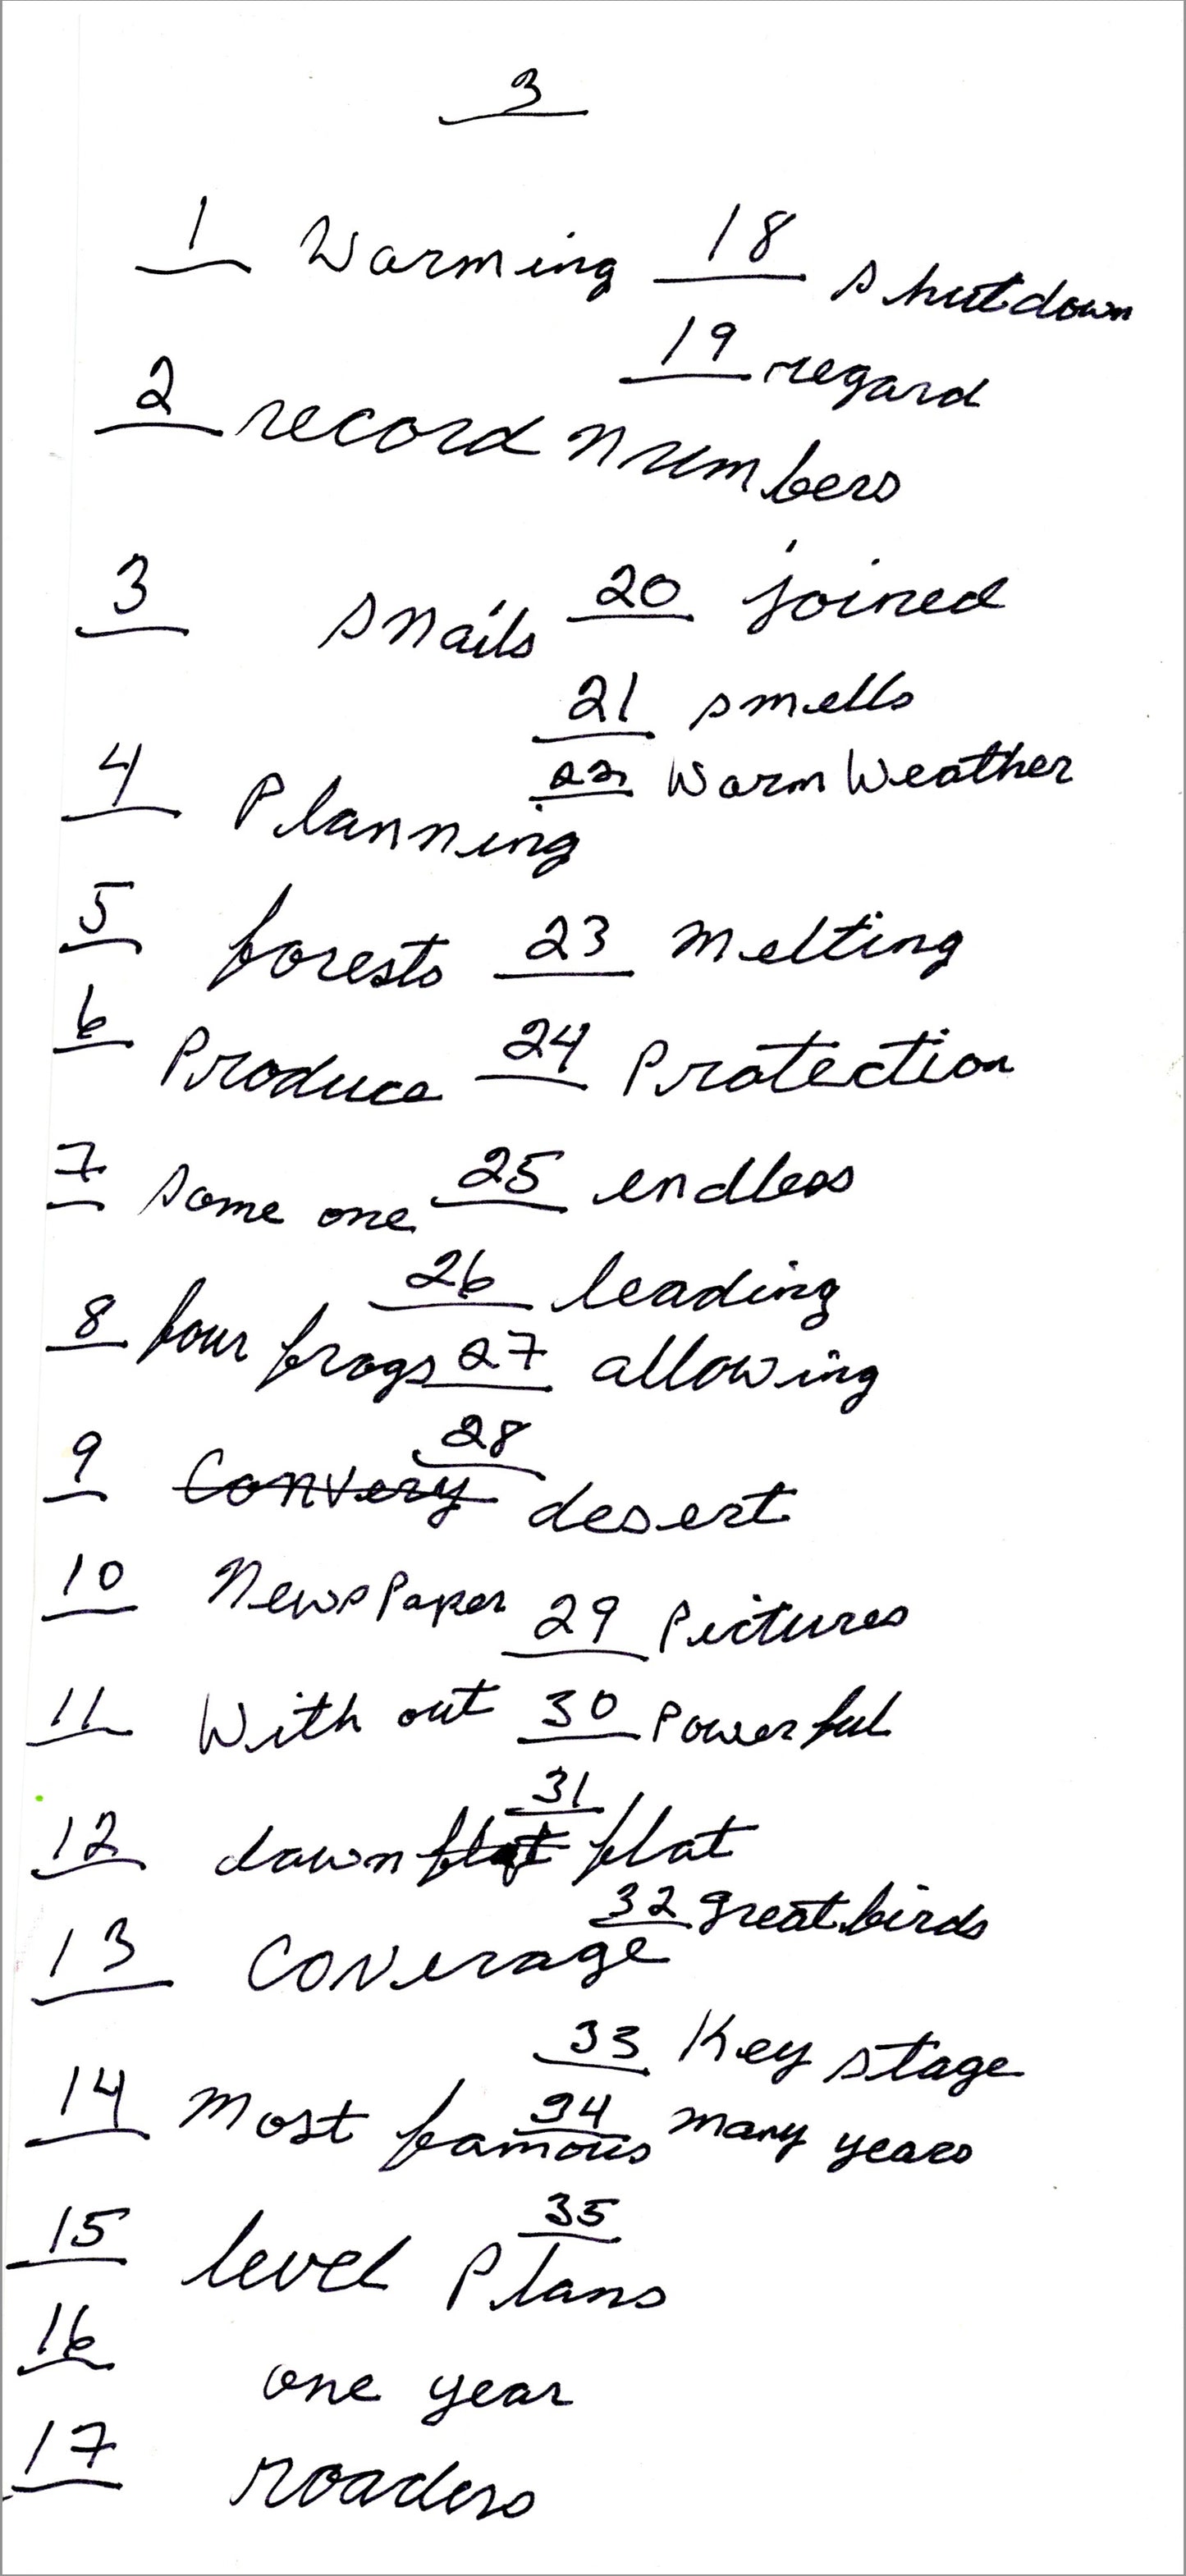 3
1 Warming 18 shutdown
19 regard
2 record numbers
3 snails 20 joined
21 smells
4 Planning 22 Warm Weather
5 forests 23 melting
6 Produce 24 Protection
7 Some one 25 endless
26 leading
8 four frogs 27 allowing
9 Convery 28 desert
10 NewsPaper 29 Pictures
11 With out 30 Powerful
12 dawn flat 31 flat
32 great birds
13 Coverage
33 Key stage
14 most famous 34 many years
15 level 35 Plans
16 one year
17 roaders